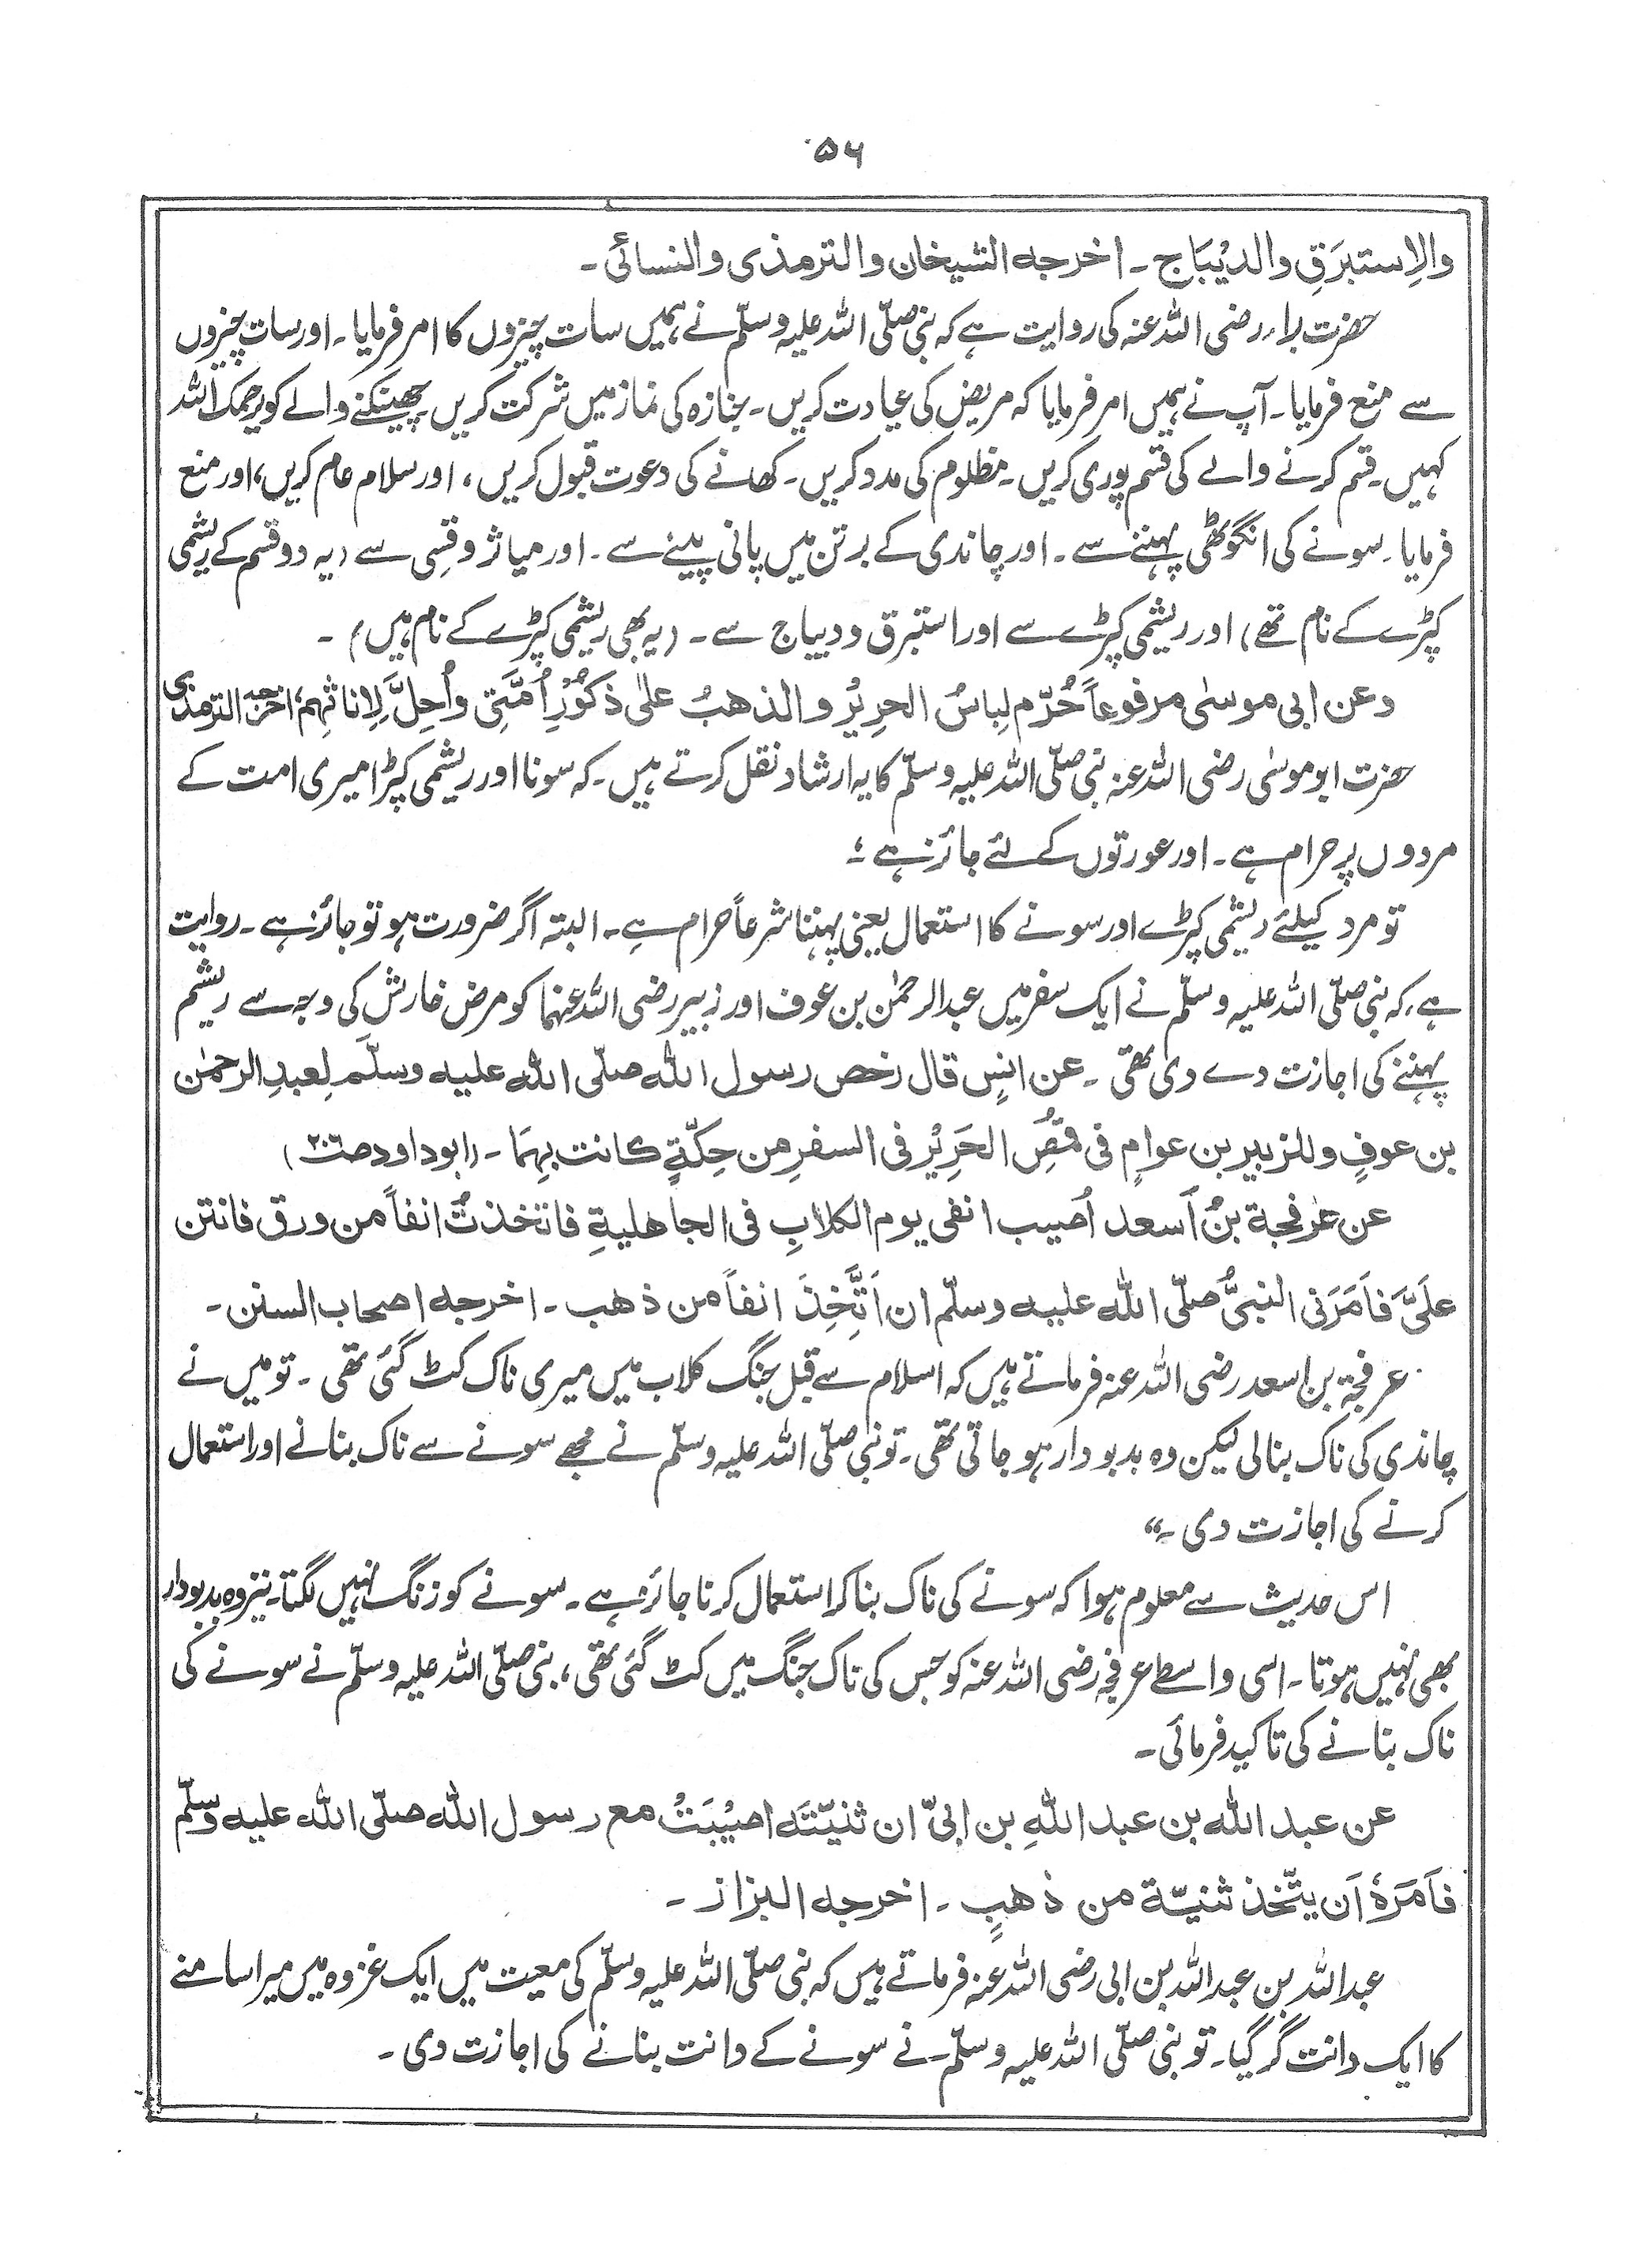 ۵۶
والِاستبرَقِ والدیْبَاج ۔ اخرجه الشیخان والترمذی والنسائی ۔
حضرت براء رضی اللہ عنہ کی روایت ہے کہ نبی صلّی اللہ علیہ وسلّم نے ہمیں سات چیزوں کا امر فرمایا ۔ اور سات چیزوں
سے منع فرمایا ۔ آپ نے ہمیں امر فرمایا کہ مریض کی عیادت کریں ۔ جنازہ کی نماز میں شرکت کریں چھینکنے والے کو یرحمک اللہ
کہیں ۔ قسم کرنے والے کی قسم پوری کریں ۔ مظلوم کی مدد کریں ۔ کھانے کی دعوت قبول کریں ، اور سلام عام کریں ، اور منع
فرمایا ۔ سونے کی انگوٹھی پہننے سے ۔ اور چاندی کے برتن میں پانی پینے سے ۔ اور میاثر وقسِی سے (یہ دو قسم کے ریشمی
کپڑے کے نام تھے) اور ریشمی کپڑے سے اور استبرق و دیباج سے ۔ (یہ بھی ریشمی کپڑے کے نام ہیں) ۔
وعن ابی موسٰی مرفوعاً حُرّم لِباسُ الحرِیْرُ والذهبُ علیٰ ذُکُوْرِ اُمَّتِی واُحِلَّ لِاِناثِهِم ، اخرجه الترمذی
حضرت ابو موسٰی رضی اللہ عنہ نبی صلّی اللہ علیہ وسلّم کا یہ ارشاد نقل کرتے ہیں ۔ کہ سونا اور ریشمی کپڑا میری امت کے
مردوں پر حرام ہے ۔ اور عورتوں کے لئے جائز ہے ؛
تو مرد کیلئے ریشمی کپڑے اور سونے کا استعمال یعنی پہننا شرعاً حرام ہے ۔ البتہ اگر ضرورت ہو تو جائز ہے ۔ روایت
ہے ، کہ نبی صلّی اللہ علیہ وسلّم نے ایک سفر میں عبدالرحمٰن بن عوف اور زبیر رضی اللہ عنہما کو مرض خارش کی وجہ سے ریشم
پہننے کی اجازت دے دی تھی ۔ عن انسٍ قال رخص رسول اللہ صلّی اللہ علیه وسلّم لِعبدِ الرحمٰن
بن عوفٍ وللزبیر بن عوامٍ فی قمُصِ الحَرِیْرِ فی السفرِ من حِکّةٍ کانت بِهِمَا ۔ (ابوداود ص۲۰۶)
عن عرفجة بنُ اَسعد اُصیب انفی یوم الکلابِ فی الجاهلیةِ فاتخذتُ انفاً من ورق فانتن
علَیَّ فاَمَرَنی النبیُّ صَلّی اللہ علیه وسلّم ان اَتَّخِذَ انفاً من ذهب ۔ اخرجه اصحاب السنن ۔
عرفجۃ بن اسعد رضی اللہ عنہ فرماتے ہیں کہ اسلام سے قبل جنگ کلاب میں میری ناک کٹ گئی تھی ۔ تو میں نے
چاندی کی ناک بنالی لیکن وہ بدبودار ہو جاتی تھی ۔ تو نبی صلّی اللہ علیہ وسلّم نے مجھے سونے سے ناک بنانے اور استعمال
کرنے کی اجازت دی ۔“
اس حدیث سے معلوم ہوا کہ سونے کی ناک بنا کر استعمال کرنا جائز ہے ۔ سونے کو زنگ نہیں لگتا ۔ نیز وہ بدبودار
بھی نہیں ہوتا ۔ اسی واسطے عرفجہ رضی اللہ عنہ کو جس کی ناک جنگ میں کٹ گئی تھی ، نبی صلّی اللہ علیہ وسلّم نے سونے کی
ناک بنانے کی تاکید فرمائی ۔
عن عبد اللہ بن عبد اللہِ بن ابیّ ان ثنیّتَه اصیْبَتْ مع رسول اللہ صلّی اللہ علیه وسلّم
فاَمَرَہٗ اَن یتّخذ ثنیّة من ذهبٍ ۔ اخرجه البزاز ۔
عبداللہ بن عبداللہ بن ابی رضی اللہ عنہ فرماتے ہیں کہ نبی صلّی اللہ علیہ وسلّم کی معیت میں ایک غزوہ میں میرا سامنے
کا ایک دانت گر گیا ۔ تو نبی صلّی اللہ علیہ وسلّم نے سونے کے دانت بنانے کی اجازت دی ۔